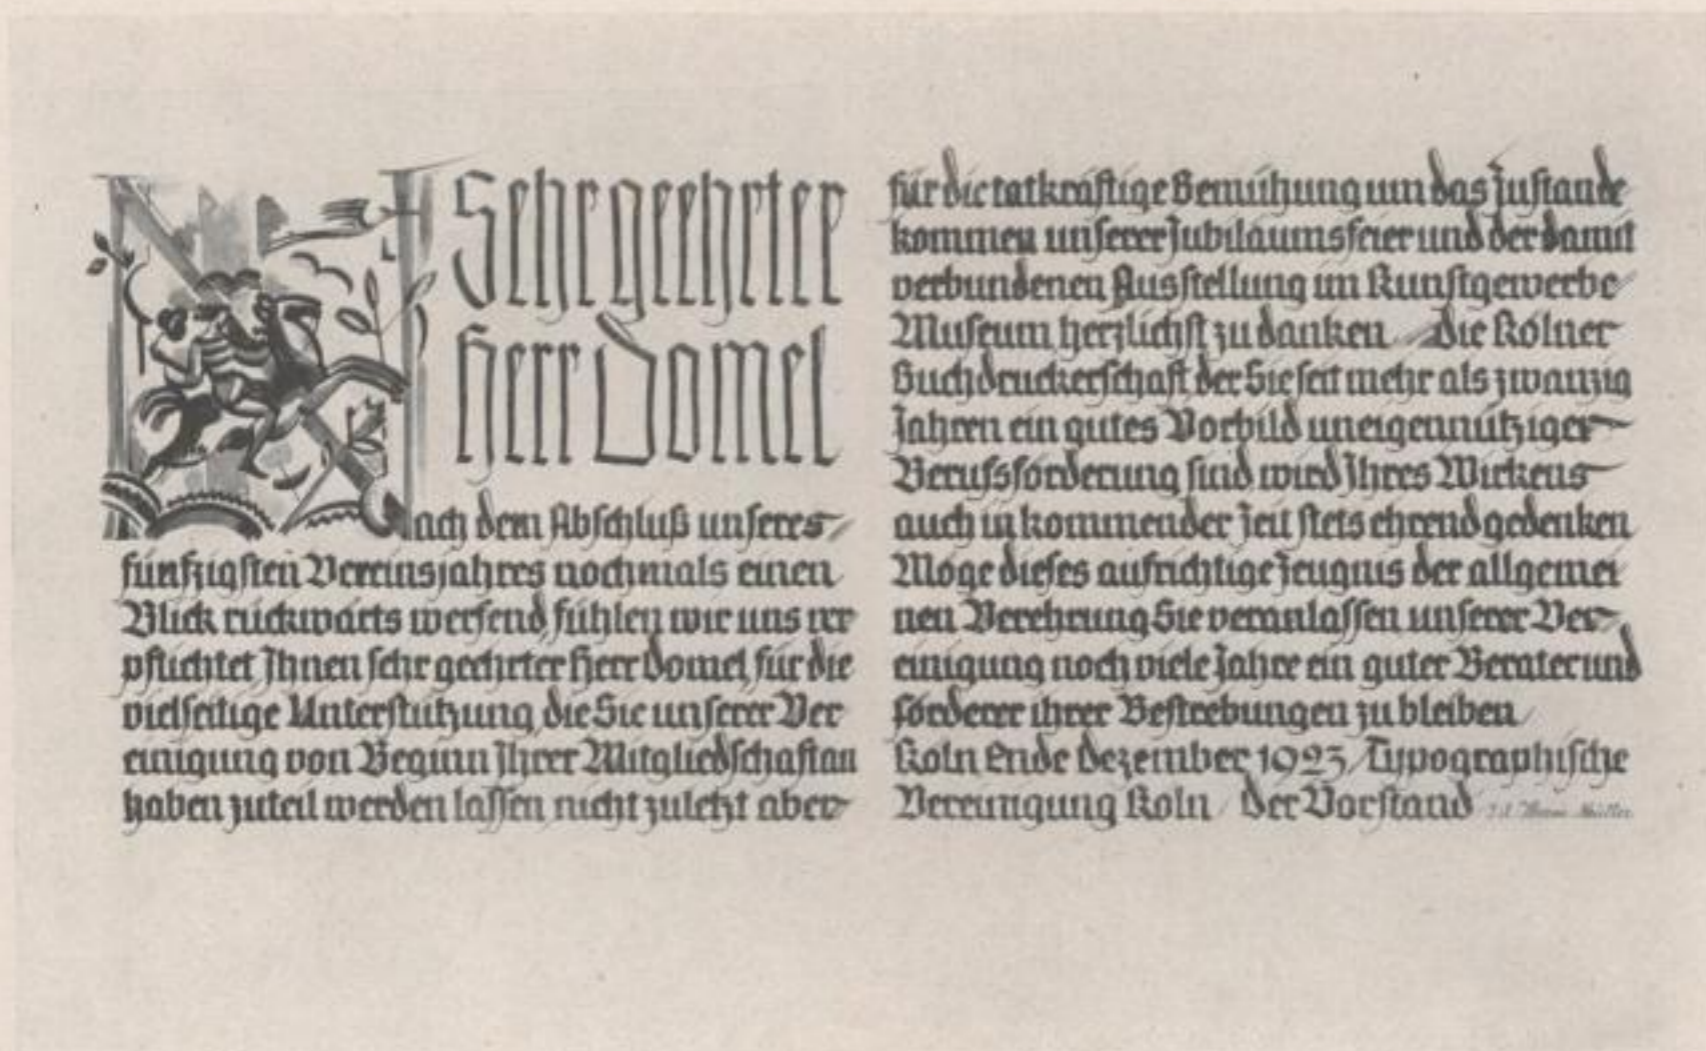 Sehr geehrter
Herr Domel
Nach dem Abschluß unseres
fünfzigsten Vereinsjahres nochmals einen
Blick rückwärts werfend, fühlen wir uns ver
pflichtet Ihnen sehr geehrter Herr Domel, für die
vielseitige Unterstützung, die Sie unserer Ver
einigung von Beginn Ihrer Mitgliedschaft an
haben zuteil werden lassen nicht zuletzt aber
für die tatkräftige Bemühung um das Zustande
kommen unserer Jubiläumsfeier und der damit
verbundenen Ausstellung im Kunstgewerbe
Museum herzlichst zu danken Die Kölner
Buchdruckerschaft der Sie seit mehr als zwanzig
Jahren ein gutes Vorbild uneigennütziger
Berufsförderung sind wird Ihres Wirkens
auch in kommender Zeit stets ehrend gedenken
Möge dieses aufrichtige Zeugnis der allgemei
nen Verehrung Sie veranlassen unserer Ver
einigung noch viele Jahre ein guter Berater und
Förderer ihrer Bestrebungen zu bleiben
Köln Ende Dezember 1923 / Typographische
Vereinigung Köln / Der Vorstand
Müller